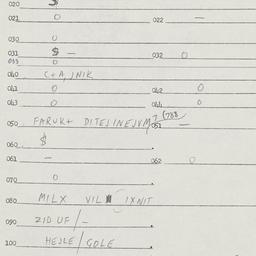 020 $
021 0 022 —
030 0
031 $ — 032 0
033 0
040 C+A, JNIK
041 0 042 0
043 0 044 0
050 FARUK+ DITEJINEJVM 051 —
060 $
061 — 062 0
070 0
080 MILX VIL IXNIT
090 ZID UF/—
100 HEJLE/GOLE